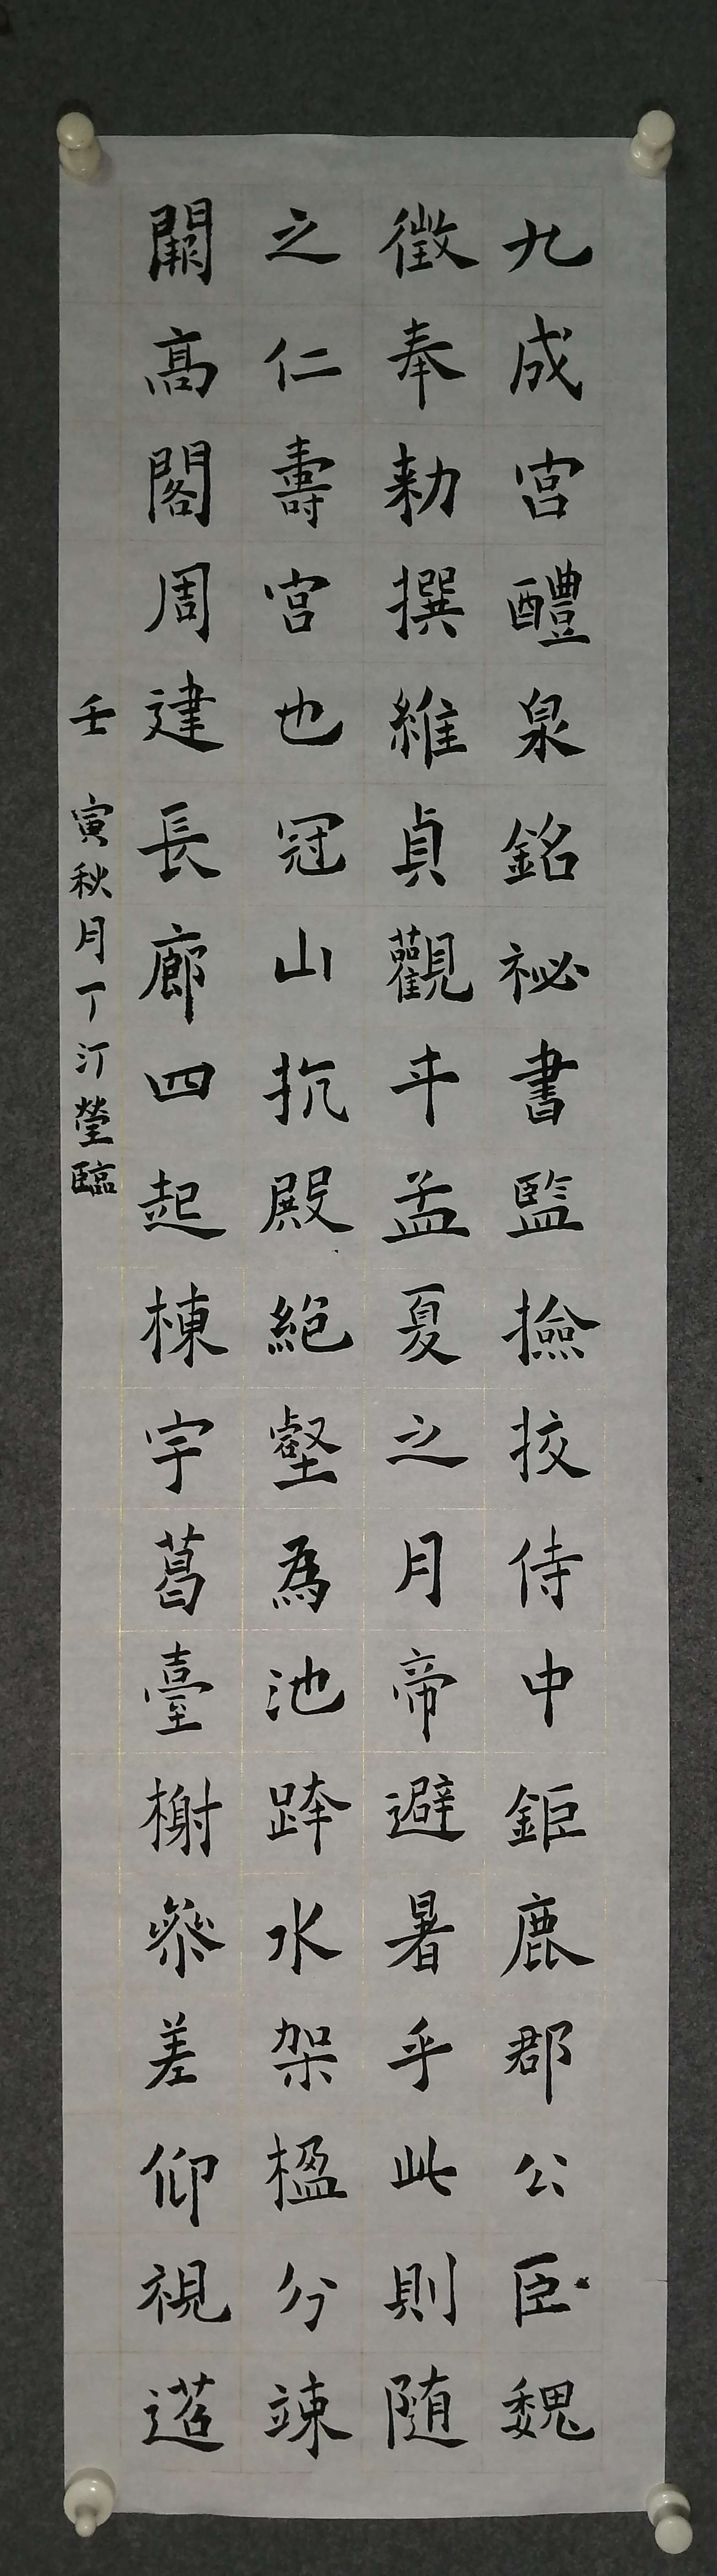 九成宮醴泉銘祕書監撿挍侍中鉅鹿郡公臣魏
徵奉勑撰維貞觀六年孟夏之月帝避暑乎此則随
之仁壽宮也冠山抗殿絕壑為池跨水架楹分竦
闕高閣周建長廊四起棟宇葛臺榭參差仰視迢
壬寅秋月丁汀瑩臨